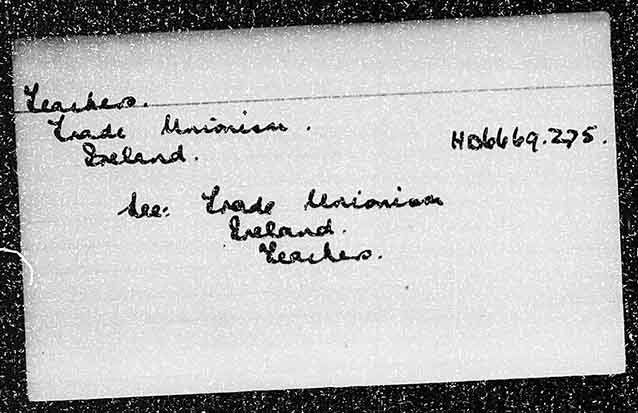 Teachers.
Trade Unionism.
Ireland.
HD6669.275.
See: Trade Unionism
Ireland.
Teachers.